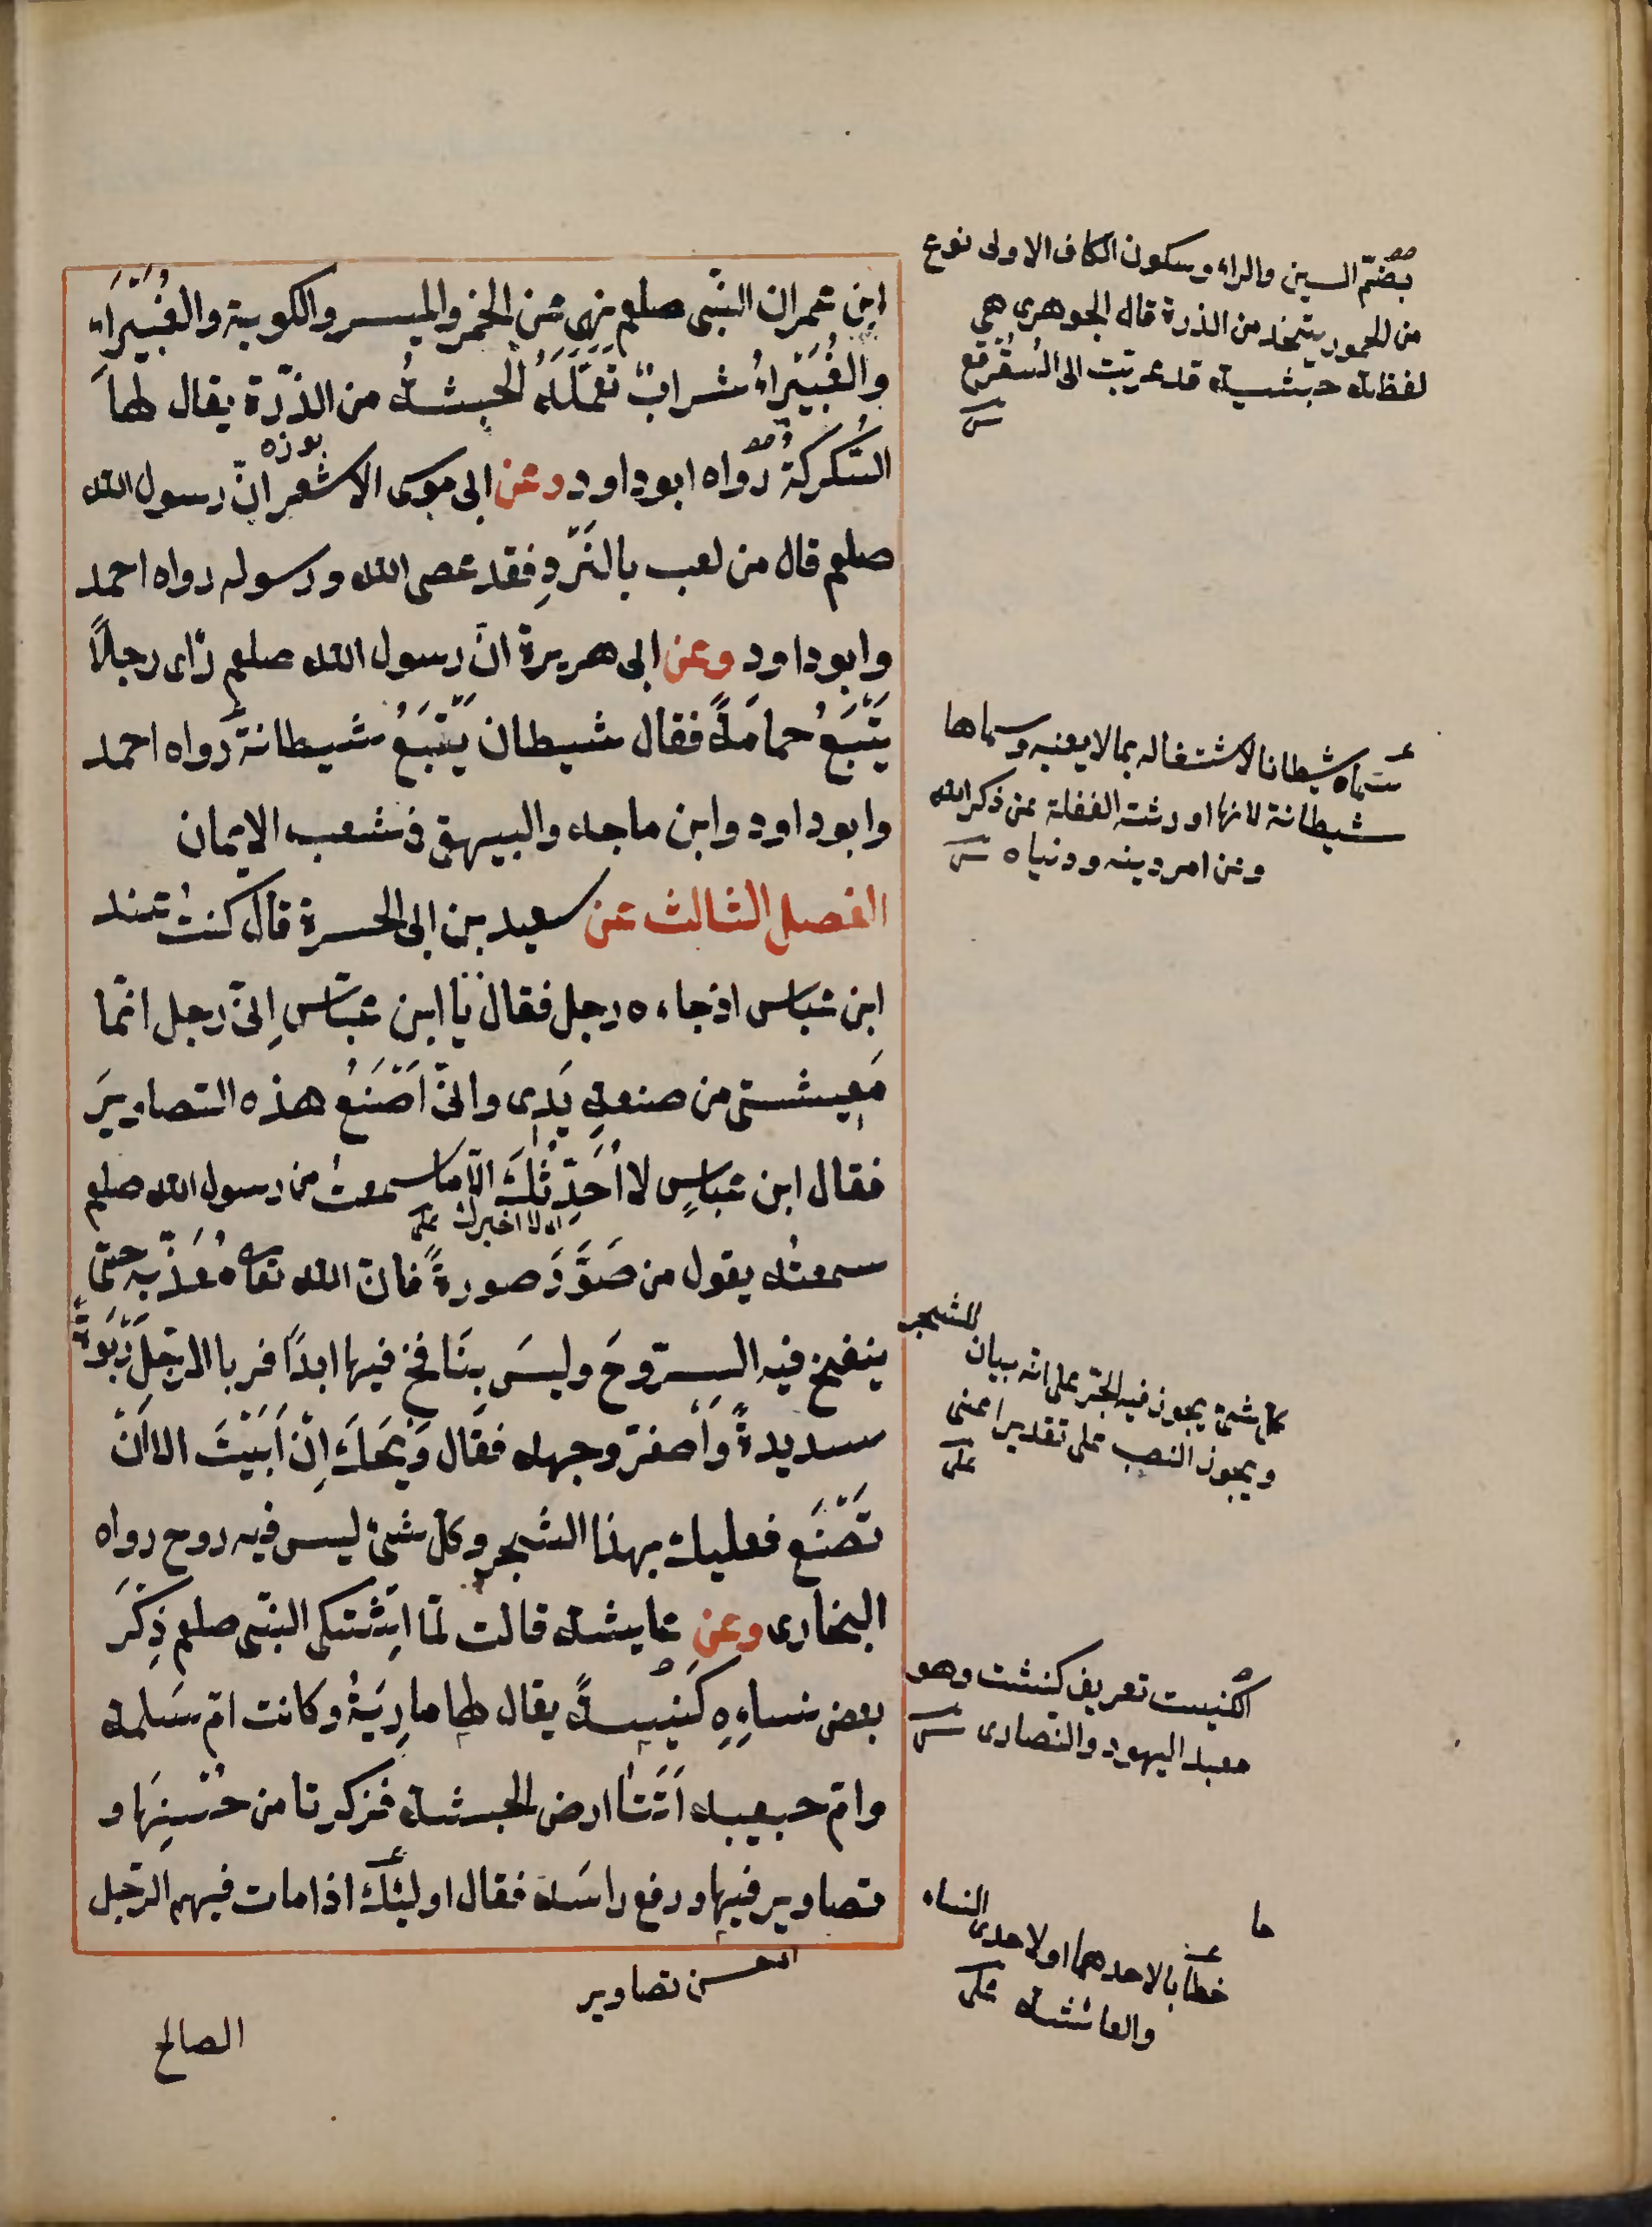 ابن عمر ان النّبى صلعم نهى عن الخمر والميسر والكوبة والغُبَيْرَاءِ
والغُبَيْرَاءُ شرابٌ تَعْمَلُهُ الحبشةُ من الذّرة يقال لها
السُّكُركةُ رواه ابو داود وعن ابى موسى الاشعر انّ رسول الله
بوزه
صلعم قال من لعب بالنَرْدِ فقد عصى الله ورسوله رواه احمد
وابو داود وعن ابى هريرة انّ رسول الله صلعم رأى رجلاً
يَتْبَعُ حمامةً فقال شيطان يَتْبَعُ شيطانةً رواه احمد
وابو داود وابن ماجه والبيهقى فى شعب الايمان
الفصل الثالث عن سعيد بن ابى الحسرة قال كنتُ عند
ابن عباس اذ جاءه رجل فقال يا ابن عبّاس اِنّى رجل انّما
مَعِيشتى من صنعةِ يَدِى وانّى اَصْنَعُ هذه التصاويرَ
فقال ابن عباسٍ لا اُحَدِّثُكَ الّا ما سمعتُ من رسول الله صلعم
اى لا اخبرك على
سمعتُه يقول من صَوَّرَ صورةً فانّ الله تعا مُعَذِّبه حتّى
ينفخ فيه الرّوحَ وليسَ بِنَافخ فيها ابدًا فربا الرّجلُ رَبْوَةً
سديدةً وَاَصفرّ وجهه فقال وَيْحَكَ اِنْ اَبَيْتَ الا اَنْ
تَصْنَع فعليك بهذا الشجرِ وكلّ شىءٍ ليس فيه روح رواه
البخارى وعن عايشة قالت لمّا اِشْتكى النبّى صلعم ذَكَرَ
بعض نساءِهِ كَنِيسةً يقال لها مارِيَةُ وكانت امّ سَلمة
وامّ حبيبه اَتَتَا ارض الحبشة فذكرتا من حُسْنِهَا و
تصاوير فيها ورفع راسَه فقال اوليئك اذا مات فيهم الرّجل
الصالح
بضمّ السين والراء وسكون الكاف الاولى نوع
من الخمور يتخذ من الذرة قال الجوهرى هى
لفظة حبشية قد عربت الى السُقُرقع
سماه شيطانا لاشتغاله بما لا يعنيه وسماها
شيطانة لانها اورثته الغفلة عن ذكر الله
وعن امر دينه ودنياه
للشجر
كلّ شىء يجوز فيه الجرّ على انه بيان
ويجوز النصب على تقدير اعنى
على
الكنيست تعريف كنشت وهو
معبد اليهود والنّصارى
خطابا لاحدهما او لاحدى النساء
والعائشة على
حسن تصاوير